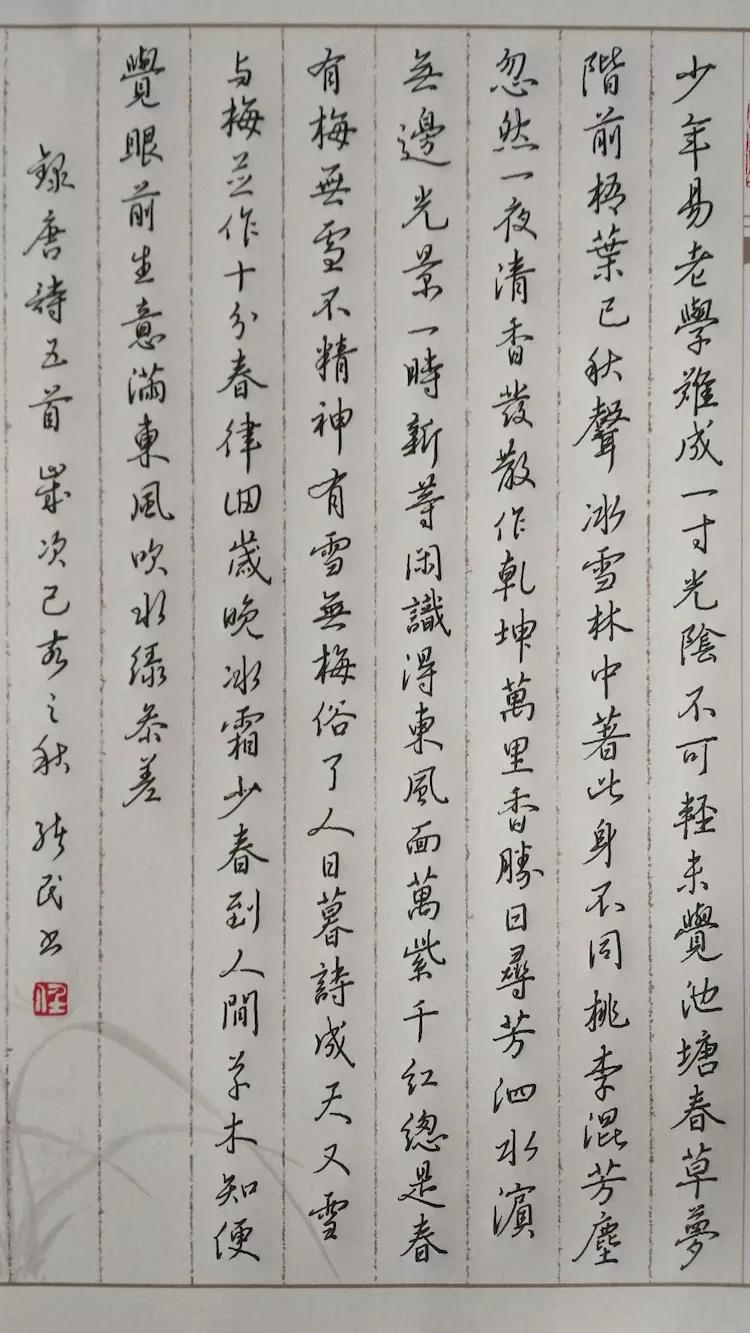 少年易老學難成一寸光陰不可輕未覺池塘春草夢
階前梧葉已秋聲冰雪林中著此身不同桃李混芳塵
忽然一夜清香發散作乾坤萬里香勝日尋芳泗水濱
無邊光景一時新等闲識得東風面萬紫千紅總是春
有梅無雪不精神有雪無梅俗了人日暮詩成天又雪
与梅並作十分春律回歲晚冰霜少春到人間草木知便
覺眼前生意滿東風吹水绿参差
錄唐詩五首歲次己亥之秋 民书